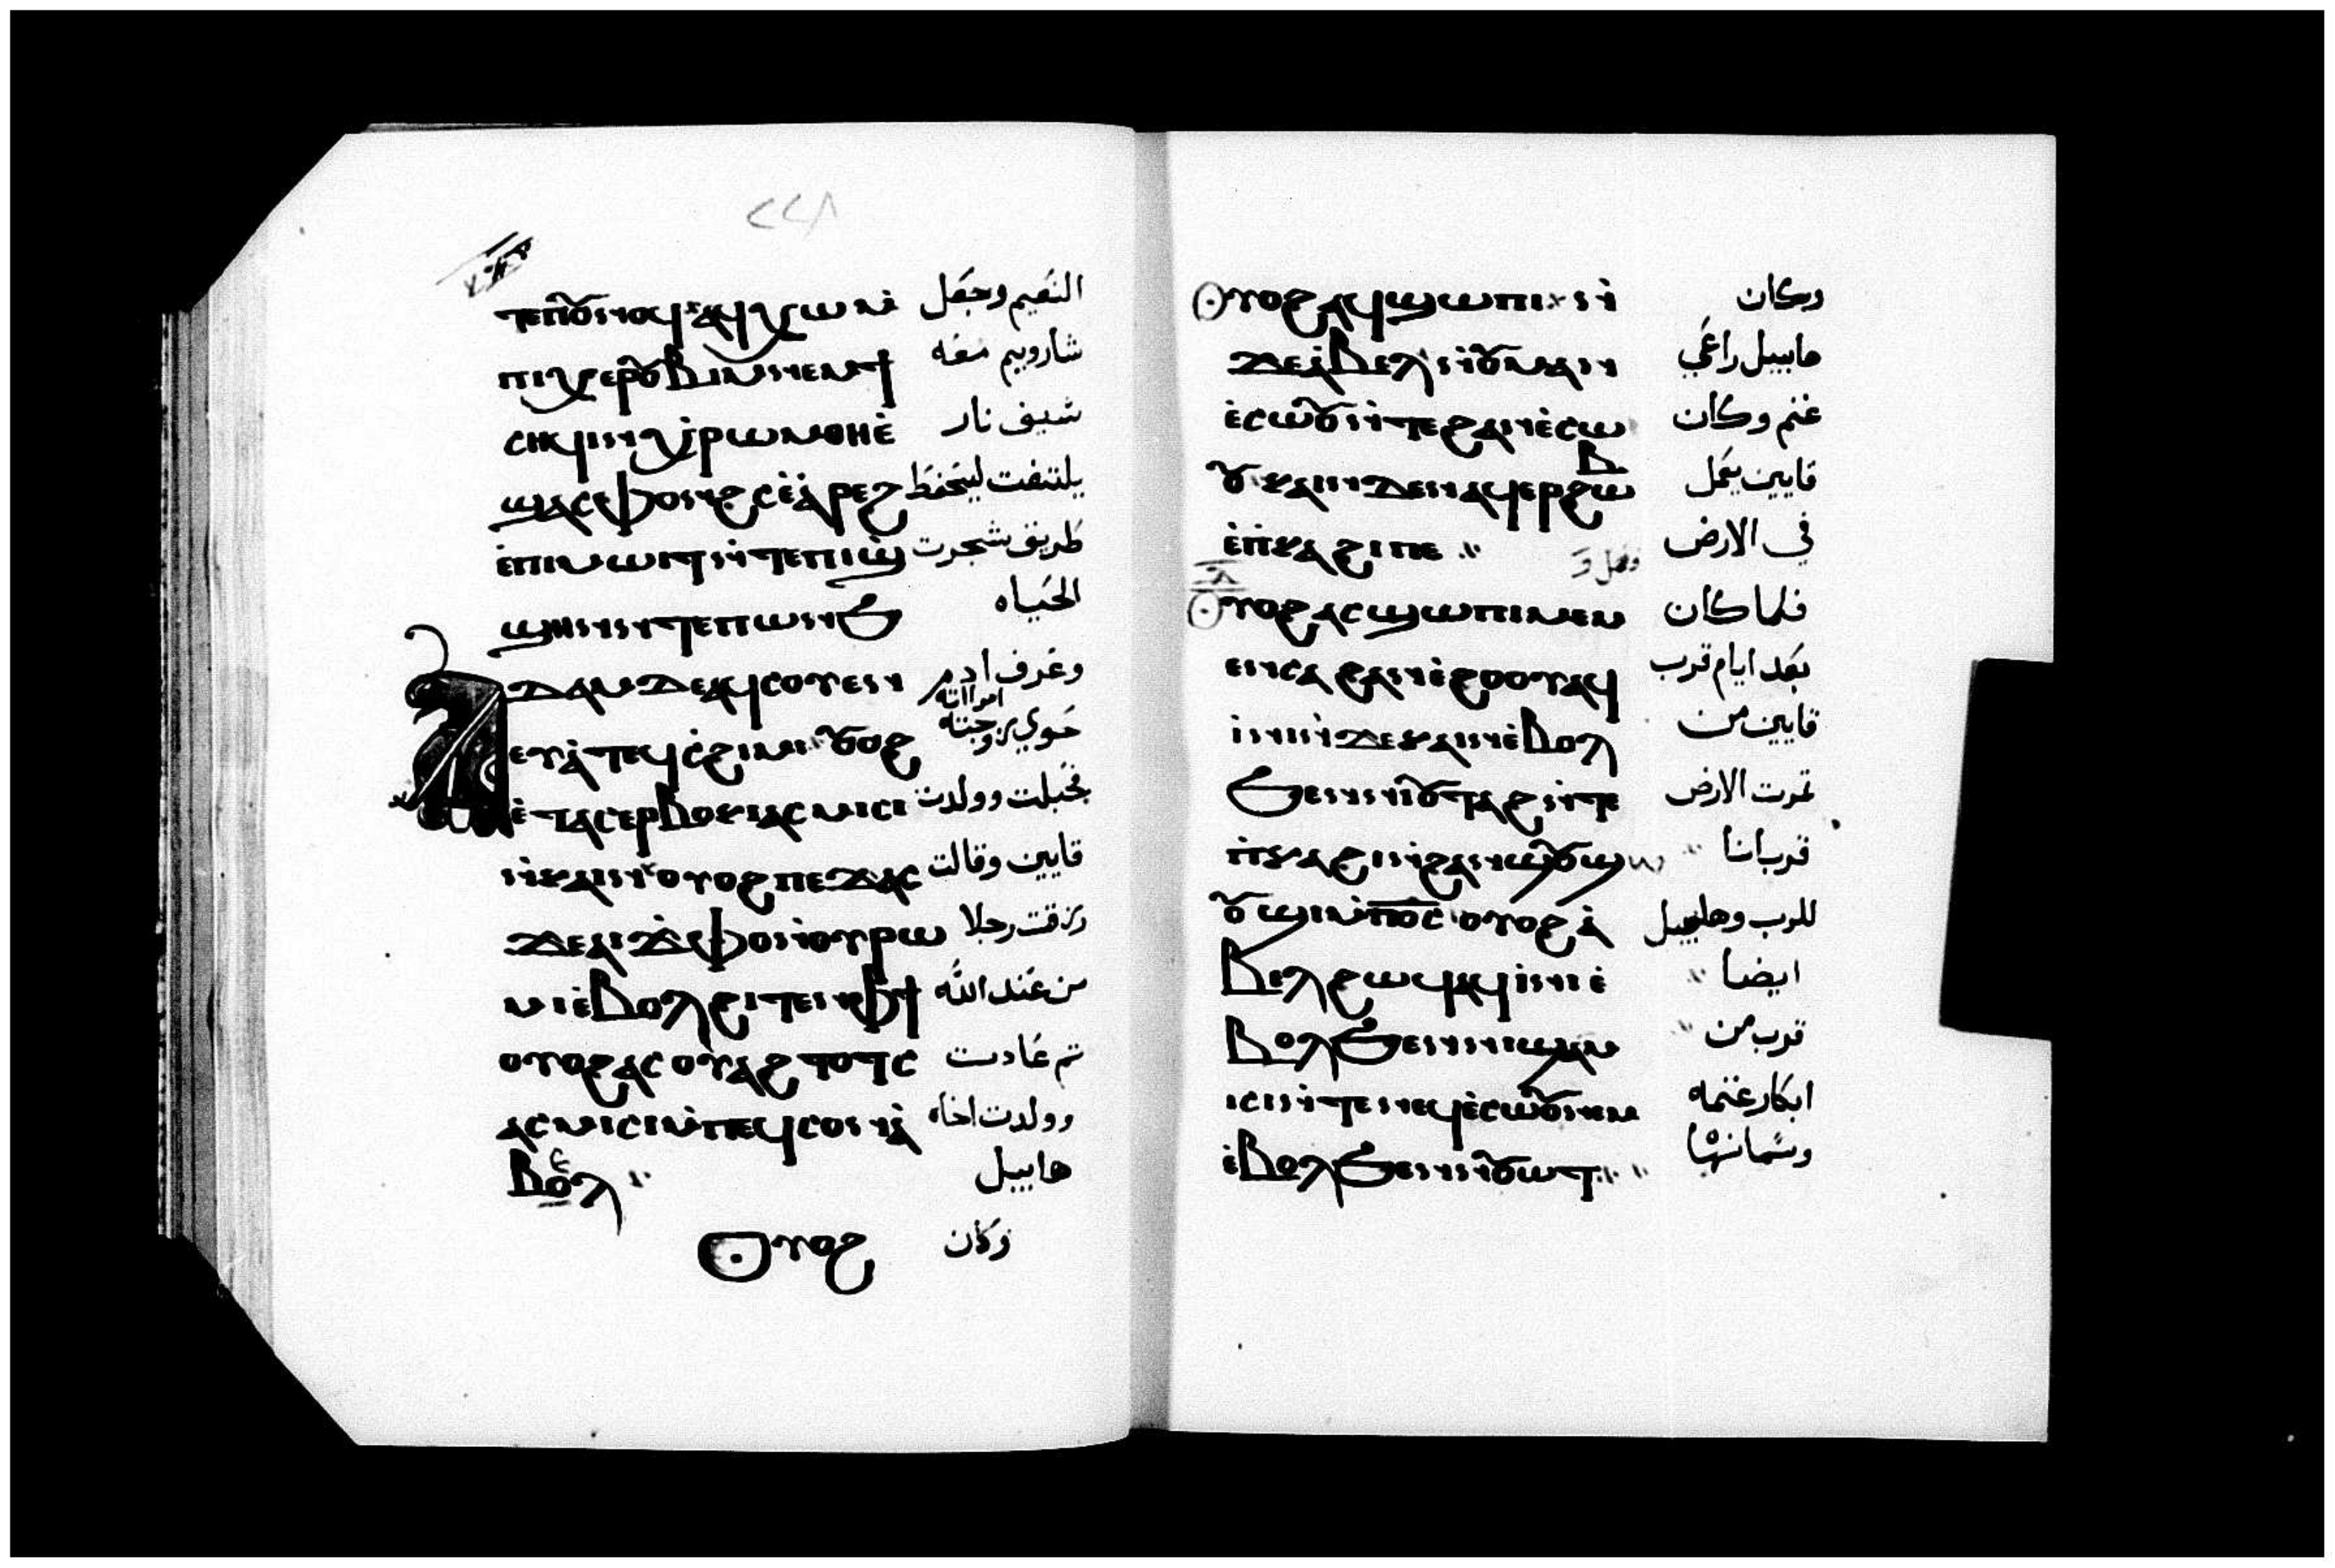 ⲧⲉⲡⲟⲩⲛⲟϥ ⲁϥⲭⲱ ⲛ̀ النعيم وجعل
ⲡⲓⲭⲉⲣⲟⲩⲃⲓⲙ ⲛⲉⲙ ϯ شاروبيم معه
ⲥⲏϥⲓ ⲛ̀ⲭ̀ⲣⲱⲙ ⲑⲏ ⲉ̀ سيف نار
ϣⲁⲥⲫⲟⲛϩⲥ ⲉ̀ⲁ̀ⲣⲉϩ يلتفت ليحفظ
ⲉ̀ⲡⲓⲙⲱⲓⲧ ⲛ̀ⲧⲉⲡⲓϣ̀ طريق شجرت
ϣⲏⲛ ⲛ̀ⲧⲉⲡⲱⲛϧ الحياه
ⲁⲇⲁⲙ ⲇⲉ ⲁϥⲥⲟⲩⲉⲛ وعرف ادم
امراته
ⲉⲩⲁ̀ ⲧⲉϥⲥ̀ϩⲓⲙⲓ ⲟⲩⲟϩ حوي زوجته
ⲉ̀ⲧⲁⲥⲉⲣⲃⲟⲕⲓ ⲁⲥⲙⲓⲥⲓ فحبلت وولدت
ⲛ̀ⲕⲁⲓⲛ ⲟⲩⲟϩ ⲡⲉϫⲁⲥ قايين وقالت
ϫⲉ ⲁⲓϫ̀ⲫⲟ ⲛ̀ⲟⲩⲣⲱ رزقت رجلا
ⲙⲓ ⲉ̀ⲃⲟⲗ ϩⲓⲧⲉⲛ ⲫϯ من عند الله
ⲟⲩⲟϩ ⲁⲥⲟⲩⲁϩⲧⲟⲧⲥ ثم عادت
ⲁⲥⲙⲓⲥⲓ ⲙ̀ⲡⲉϥⲥⲟⲛ ⲁ̀ وولدت اخاه
ⲃⲉⲗ هابيل
ⲟⲩⲟϩ وكان
ⲟⲩⲟϩ ⲁϥϣⲱⲡⲓ ⲛ̀ وكان
ϫⲉ ⲁ̀ⲃⲉⲗ ⲛ̀ⲟⲩⲙⲁⲛ هابيل راعي
ⲉ̀ⲥⲱⲟⲩ ⲛ̀ⲧⲉ ϩⲁⲛⲉ̀ⲥⲱ غنم وكان
ⲟⲩ ⲕⲁⲓⲛ ⲇⲉ ⲛⲁϥⲉⲣϩⲱⲃ قايين يعمل
ⲉ̀ⲡ̀ⲕⲁϩⲓ ⲡⲉ في الارض
ⲟⲩⲟϩ ⲁⲥϣⲱⲡⲓ ⲙⲉⲛ فلما كان
ⲉⲛⲥⲁ ϩⲁⲛⲉ̀ϩⲟⲟⲩ ⲁϥ بعد ايام قرب
ⲓ̀ⲛⲓ ⲛ̀ϫⲉ ⲕⲁⲓⲛ ⲉ̀ⲃⲟⲗ قايين من
ϧⲉⲛ ⲛⲓⲟⲩⲧⲁϩ ⲛ̀ⲧⲉ ثمرت الارض
ⲡ̀ⲕⲁϩⲓ ⲛ̀ϩⲁⲛϣⲟⲩϣⲱ قربانا
ⲟⲩϣⲓ ⲙ̀ⲡⲟ̅ⲥ̅ ⲟⲩⲟϩ ⲁ̀ للرب وهابيل
ⲃⲉⲗ ϩⲱϥ ⲁϥⲓ̀ⲛⲓ ⲉ̀ ايضا
ⲃⲟⲗ ϧⲉⲛ ⲛⲓϣⲁⲙ قرب من
ⲓⲥⲓ ⲛ̀ⲧⲉ ⲛⲉϥⲉ̀ⲥⲱⲟⲩ ⲛⲉⲙ ابكار غنمه
ⲉ̀ⲃⲟⲗ ϧⲉⲛ ⲛⲓⲟⲩⲱⲧ وسمانها